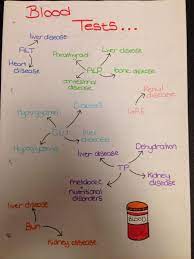 Blood
Tests...
liver disease
ALT
Heart disease
Parathyroid
liver disease
ALP
bone disease
intestinal disease
Renal disease
Diabetes
liver disease
liver disease
Dehydration
TP
Kidney disease
metabolic + nutritional disorders
liver disease
Bun
Kidney disease
BLOOD